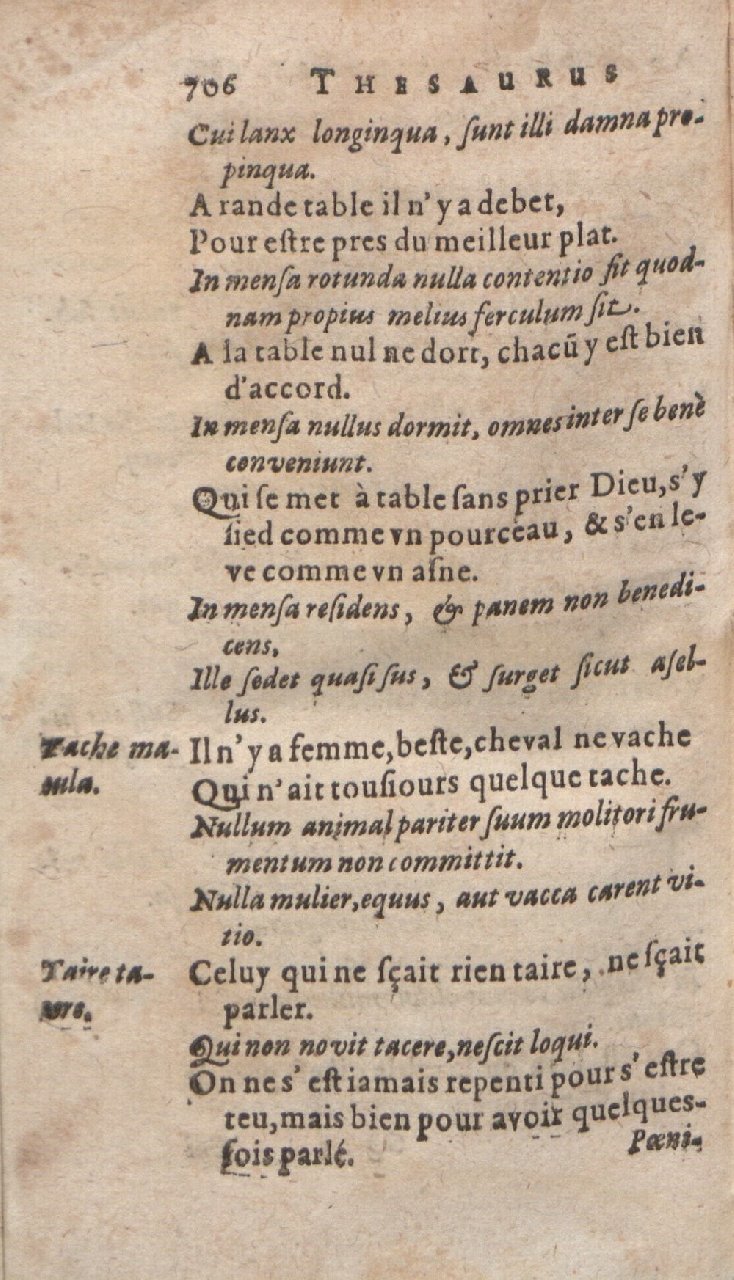 706 THESAURUS
Cui lanx longinqua, ſunt illi damna pro-
pinqua.
A rande table il n'y a debet,
Pour eſtre pres du meilleur plat.
In menſa rotunda nulla contentio ſit quod-
nam propius melius ferculum ſit.
A la table nul ne dort, chacũ y eſt bien
d'accord.
In menſa nullus dormit, omnes inter ſe benè
conveniunt.
Qui ſe met à table ſans prier Dieu, s'y
ſied comme vn pourceau, & s'en le-
ve comme vn aſne.
In menſa reſidens, & panem non benedi-
cens,
Ille ſedet quaſi ſus, & ſurget ſicut aſel-
lus.
Tache ma-
cula.
Il n'y a femme, beſte, cheval ne vache
Qui n'ait touſiours quelque tache.
Nullum animal pariter ſuum molitori fru-
mentum non committit.
Nulla mulier, equus, aut vacca carent vi-
tio.
Taire ta-
cere.
Celuy qui ne ſçait rien taire, ne ſçait
parler.
Qui non novit tacere, neſcit loqui.
On ne s'eſt iamais repenti pour s'eſtre
teu, mais bien pour avoir quelques-
fois parlé.
Pœni-